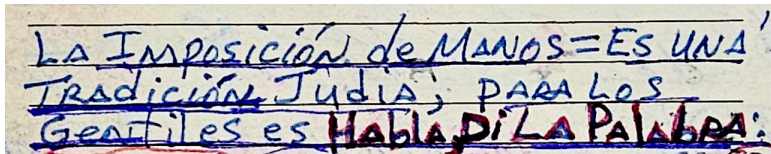 LA IMPOSICIÓN de MANOS = ES UNA
TRADICIÓN JUDIA; PARA LOS
GENTILES es HABLA, Di LA PALABRA: